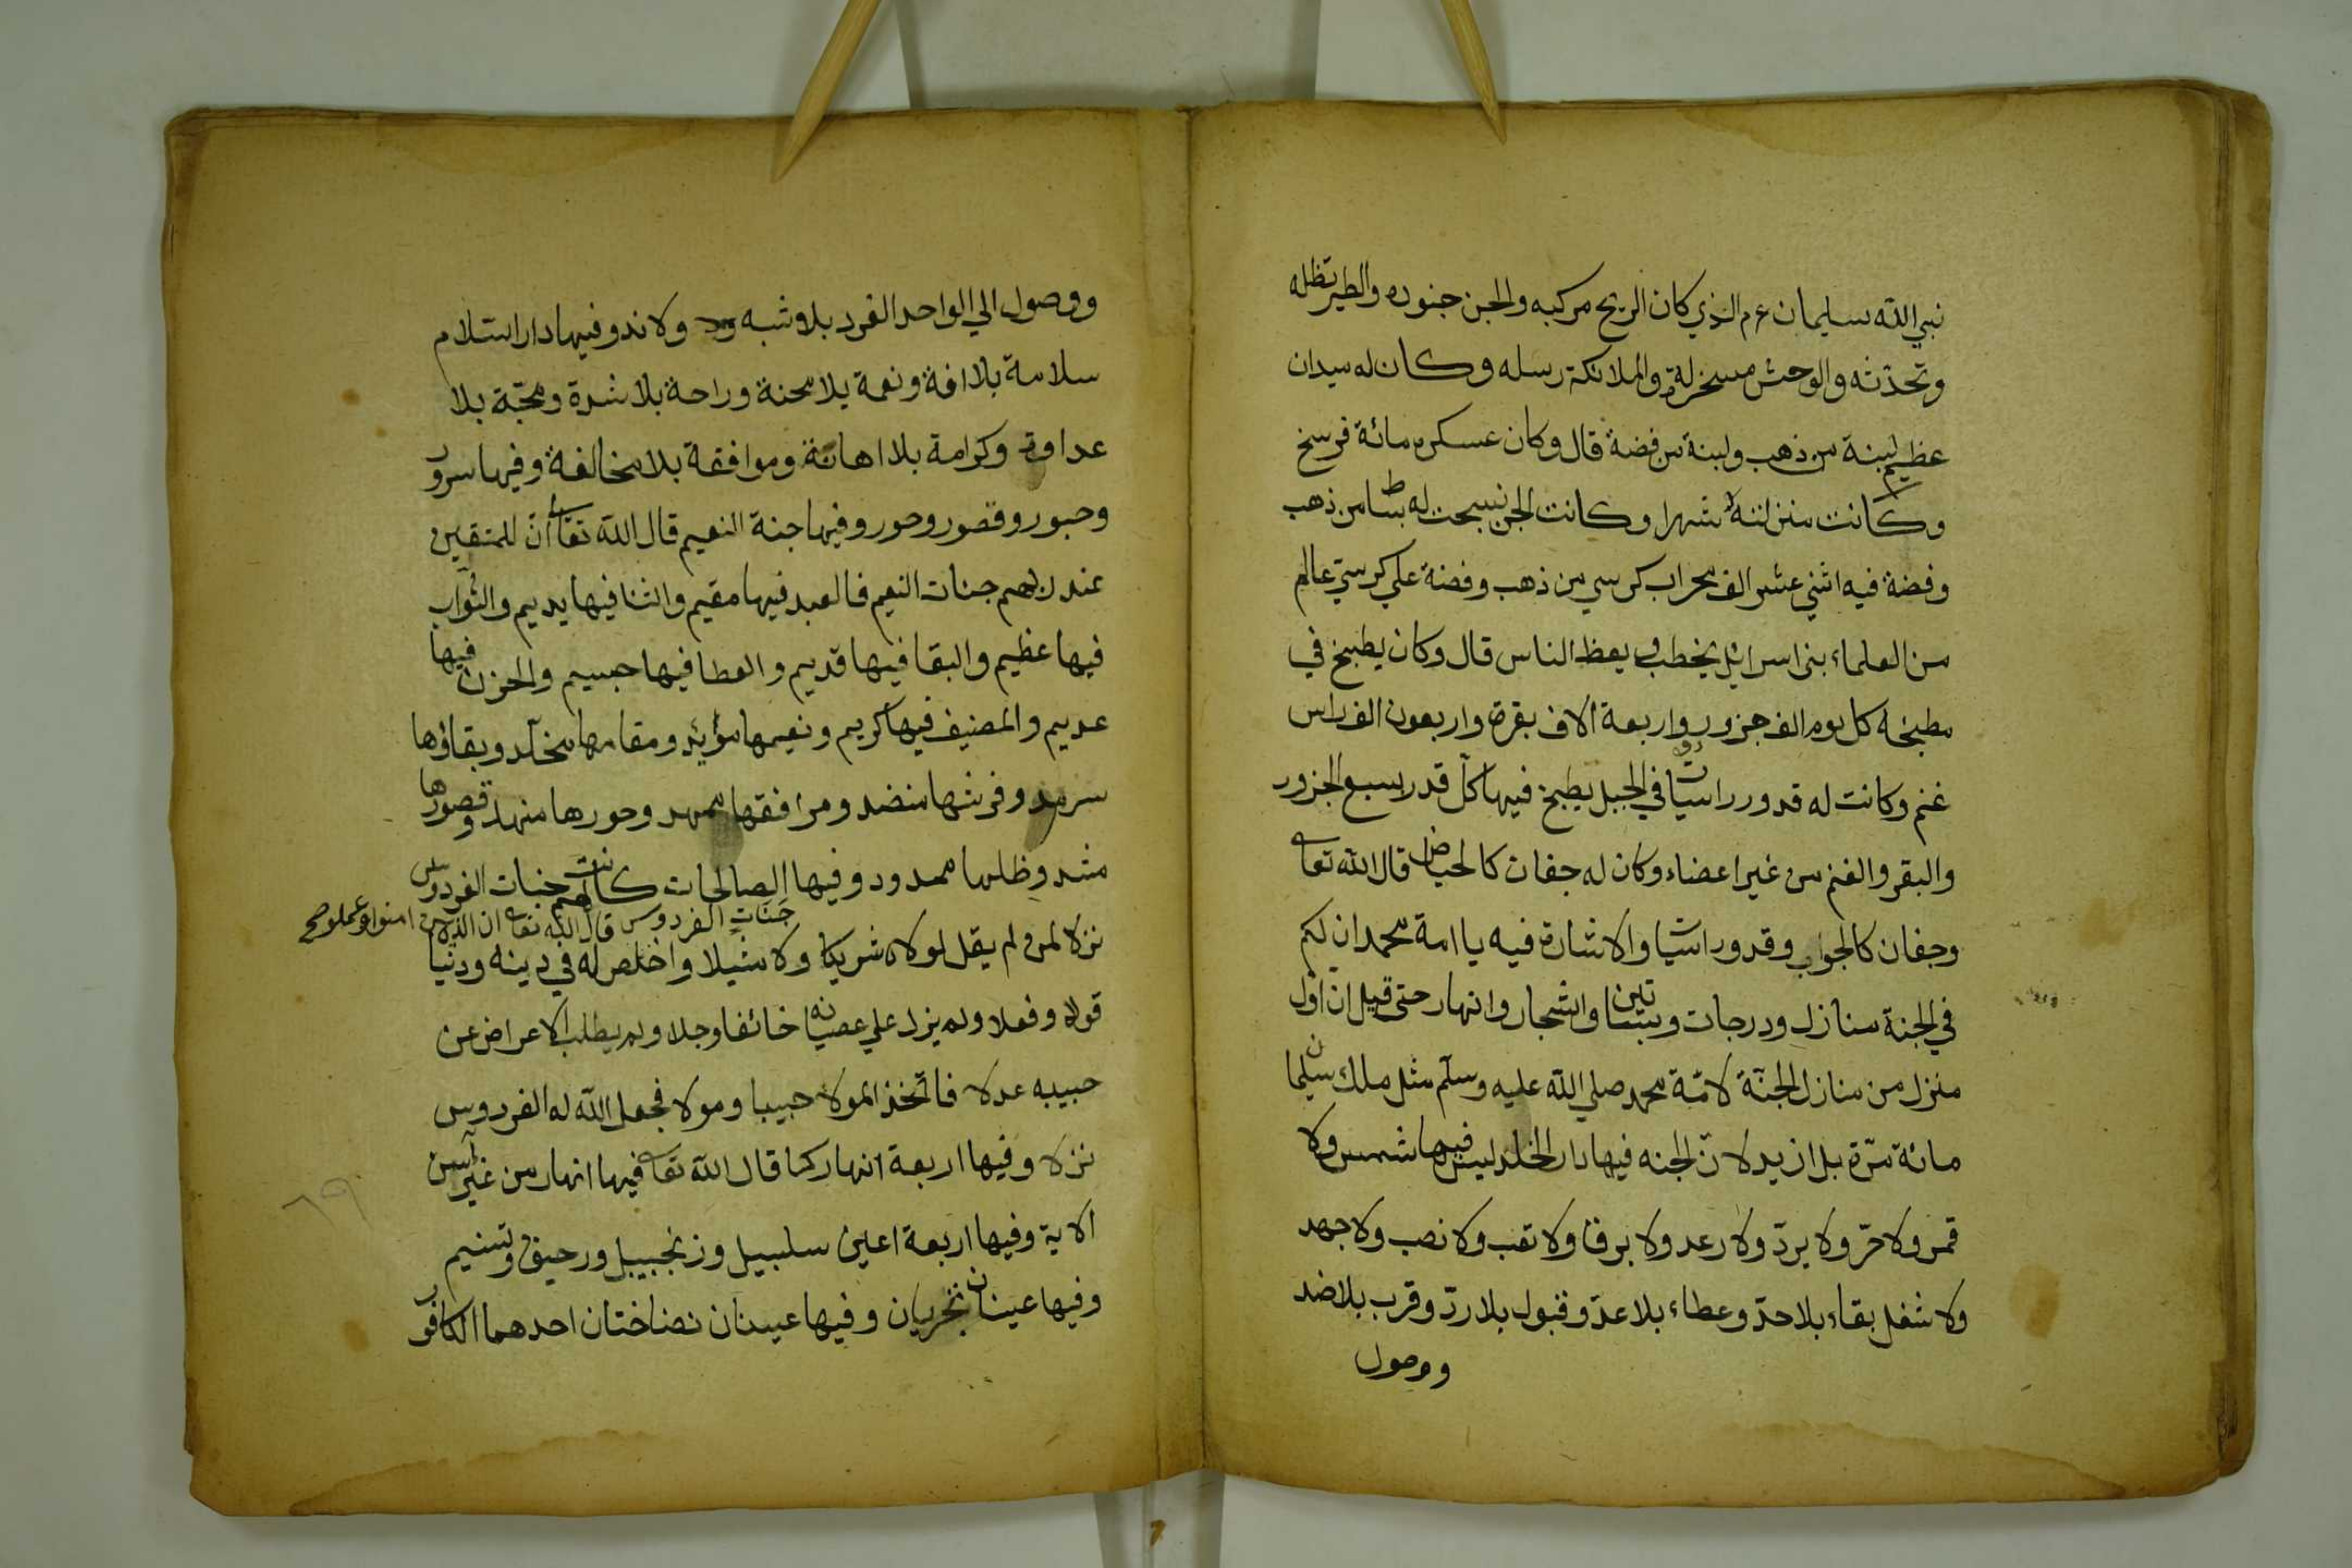 نبي الله سليمان عم الذي كان الريح مركبه والجن جنوده والطير تظله
وتحدثه والوحش مسخرة له والملائكة رسله وكان له ميدان
عظيم لبنة من ذهب ولبنة من فضة قال وكان عسكره مائة فرسخ
وكانت منزلته شهرا وكانت الجن نسجت له بساطا من ذهب
وفضة فيه اثني عشر الف محراب كرسي من ذهب وفضة علي كرسي عالم
من العلماء بنى اسرائيل يخطب و يعظ الناس قال وكان يطبخ في
مطبخه كل يوم الف جزور واربعة الاف بقرة واربعون الف راس
غنم وكانت له قدور راسيات في الجبل يطبخ فيها كل قدر اسبع الجزور
والبقر والغنم من غير اعضاء وكان له جفات كالحياض قال الله تعالى
وجفان كالجواب وقدور راسيات والاشارة فيه يا امة محمد ان لكم
في الجنة منازل ودرجات وبساتين واشجار وانهار حتى قيل ان اول
منزل من منازل الجنة لامة محمد صلي الله عليه وسلم مثل ملك سليمان
مائة مرة بل ازيد لان الجنه فيها دار الخلد ليس فيها شمس ولا
قمر ولا حر ولا برد ولا رعد ولا برقا ولا تعب ولا نصب ولا جهد
ولا شغل بقاء بلا حد وعطاء بلا عد وقبول بلا رد وقرب بلا ضد
ووصول
ووصول الي الواحد الفرد بلا شبه ولا ند وفيها دار السلام
سلامة بلا افة ونعمة بلا محنة وراحة بلا شدة ومحبة بلا
عداوة وكرامة بلا اهانة وموافقة بلا مخالفة وفيها سرور
وحبور وقصور وحور وفيها جنة النعيم قال الله تعالى ان للمتقين
عند ربهم جنات النعيم فالعبد فيها مقيم والثنا فيها يديم والثواب
فيها عظيم والبقا فيها قديم والعطا فيها جسيم والحزن فيها
عديم والمضيف فيها كريم ونعيمها مؤبد ومقامها مخلد وبقاؤها
سرمد وفرشها منضد ومرافقها ممهد وحورها منهد وقصورها
مشد وظلها ممدود وفيها الصالحات كانت لهم جنات الفردوس
جنات الفردوس قال الله تعالى ان الذين امنوا وعملوا
نزلا لمن لم يقل لمولاه شريكا ولا مثيلا واخلص له في دينه ودنيا
قولا وفعلا ولم يزل علي عصيانه خائفا وجلا ولم يطلب الاعراض عن
حبيبه عدلا فاتخذ المولا حبيبا ومولا فجعل الله له الفردوس
نزلا وفيها اربعة انهار كما قال الله تعالى فيها انهار من غير آسن
الاية وفيها اربعة اعين سلبيل وزنجبيل ورحيق وتسنيم
وفيها عينان تجريان وفيها عينان نضاختان احدهما الكافور
٦٩